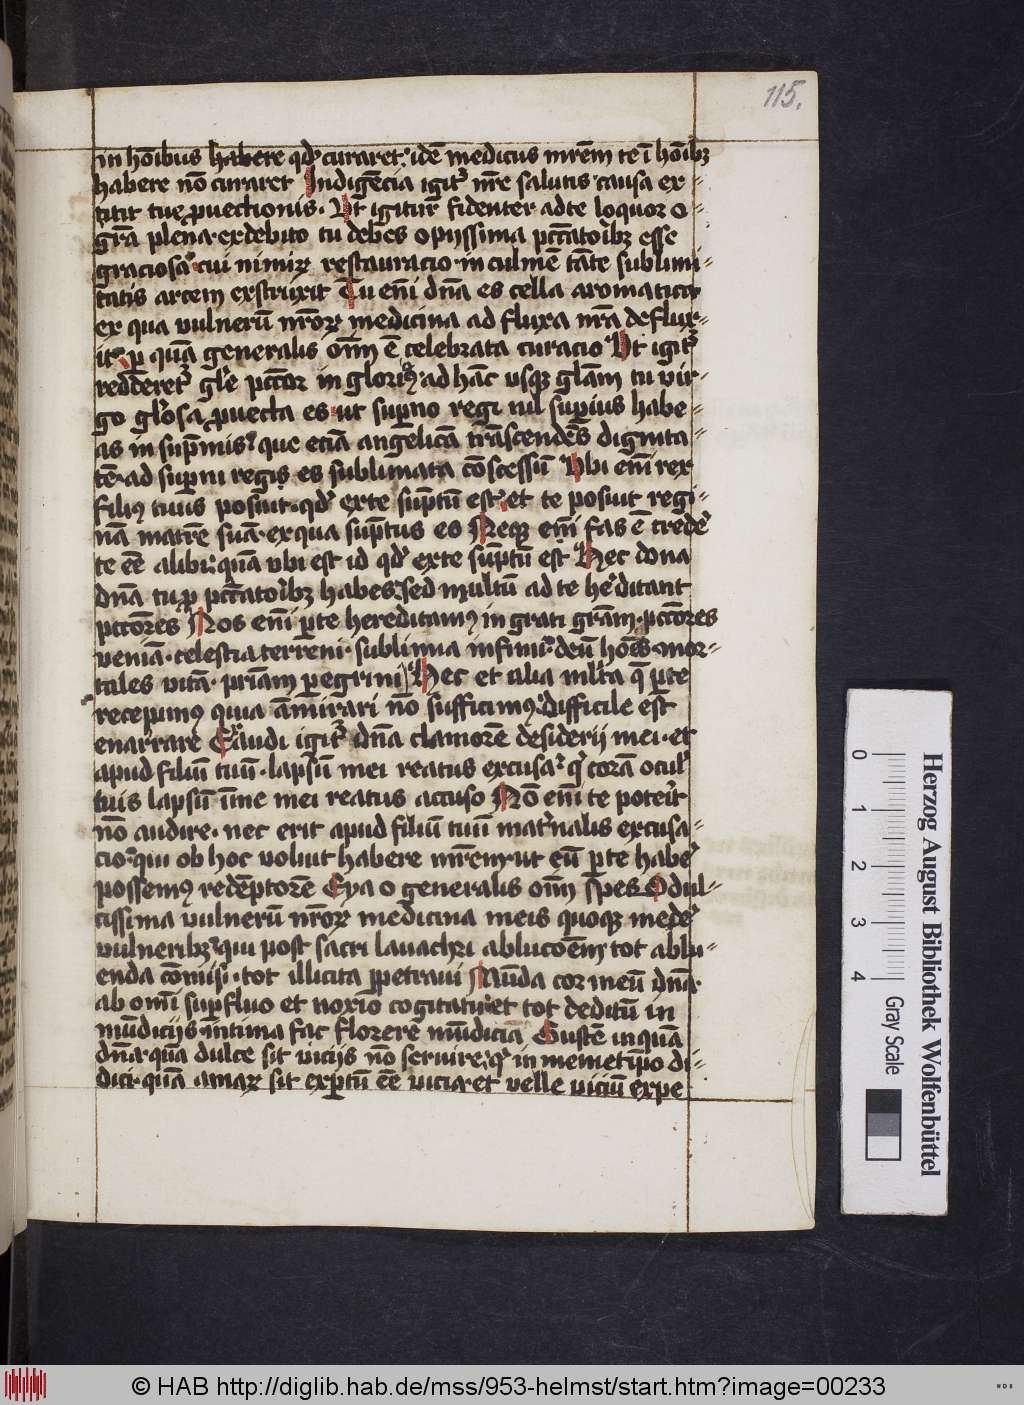 115.
in hōibus habere qd' curaret. idē medicus mrēm te ī hōib3
habere nō curaret Indigēcia igit' nr̄e salutis causa ex=
titit tue ꝓuectionis. Ut igitur fidenter ad te loquor o=
gr̄a plena. ex debito tu debes o pijssima pctātoīb3 esse
graciosa. cui nimiꝝ restauracio in culmē tāte sublimi=
tatis arcem exstruxit Tu em̄ dn̄a es cella aromatica
ex qua vulnerū nr̄oꝝ medicina ad fluxa nr̄a deflux=
it. ꝑ quā generalis om̄ ē celebrata curacio Ut igit'
redderet' gl'e pctor in glorius. ad hāc usqꝫ glām tu vir=
go gl'osa ꝓuecta es ut suꝑno regi nil suꝑius habe=
as in supͫmis. que eciā angelicā trāscendēs dignita=
tē. ad suꝑni regis es sublimata cōscessū Ubi em̄ rex
filiꝰ tuus posuit. qd' ex te sūptū est. et te posuit regi=
nā matrē suā. ex qua sūptus es Neqꝫ em̄ fas ē crede'
te eē alibi. quā ubi est id qd' ex te sūptū est Hec dona
dn̄a tu ꝓ pctātoīb3 habes. sed multū ad te he'ditant
pctōres Nos em̄ ꝑ te hereditamꝰ in grati grām. pctōres
veniā. celestia terreni. sublimia infimi. deū hoīes. mor=
tales vitā. pr̄iam ꝑegrini Hec et alia ml'ta q̄ ꝑ te
recepimus quia āmirari nō sufficimꝰ. difficile est
enarrare Exaudi igit' dn̄a clamorē desiderij mei. et
apud filiū tuū. lapsū mei reatus excusa. q' corā ocul'
tuis lapsū nūc mei reatus accuso Nō em̄ te poteit
nō audire. nec erit apud filiū tuū mat'nalis excusa=
cio. qui ob hoc voluit habere mrēm. ut eū ꝑ te habe'
possemꝰ redēptorē Eya o generalis om̄ spes O dul=
cissima vulnerū nr̄oꝝ medicina meis quoqꝫ mede'
vulnerib3. qui post sacri lavachri ablucōem tot ablu=
enda cōmisi. tot illicita ꝑpetravi Mūda cor meū dn̄a.
ab om̄i suꝑfluo et noxio cogitatu. et tot deditū in
mūdicijs. intima fac florere mūdiciā Gustē inquā
dn̄a. quā dulce sit vicijs nō servire. q' in memetip̄o di=
dici. quā amaꝝ sit exꝑtū eē vicia. et velle viciū expe
Herzog August Bibliothek Wolfenbüttel
0 1 2 3 4
Gray Scale
© HAB http://diglib.hab.de/mss/953-helmst/start.htm?image=00233